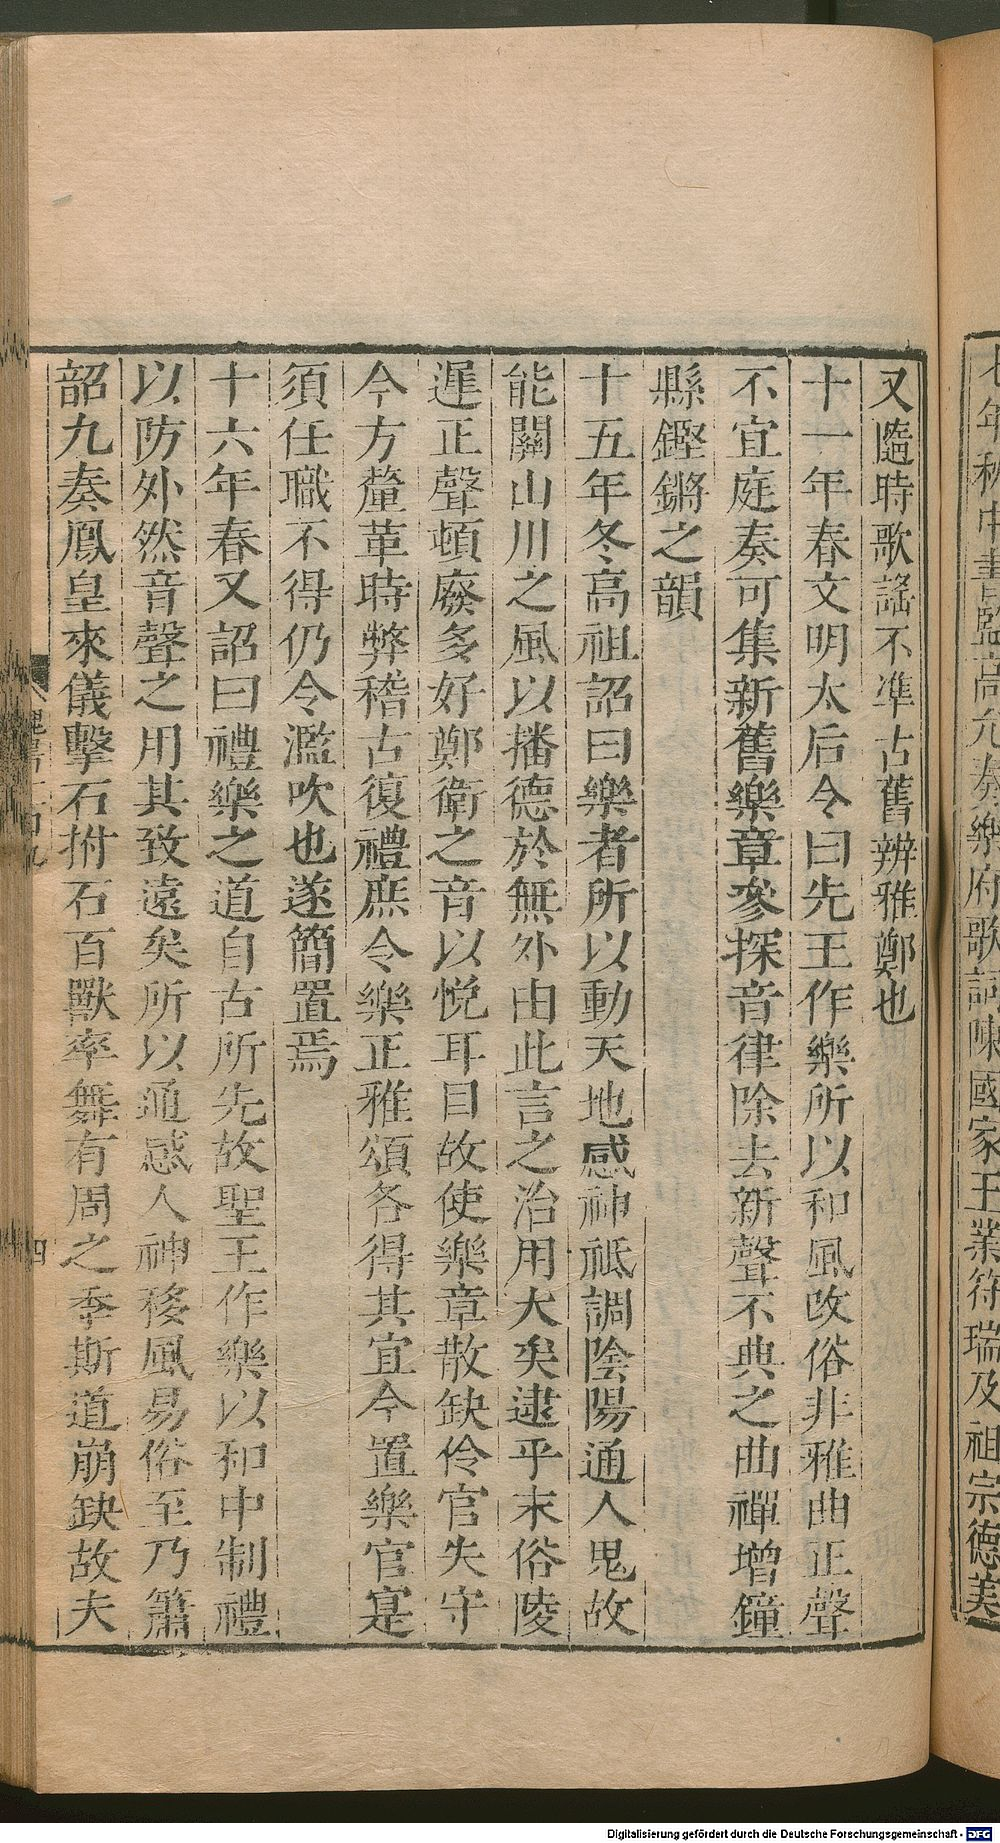 七年秋中書監高允奏樂府歌詞陳國家王業符瑞及祖宗德美
又隨時歌謠不準古舊辨雅鄭也
十一年春文明太后令曰先王作樂所以和風改俗非雅曲正聲
不宜庭奏可集新舊樂章參探音律除去新聲不典之曲禪增鐘
縣鏗鏘之韻
十五年冬高祖詔曰樂者所以動天地感神祇調陰陽通人鬼故
能關山川之風以播德於無外由此言之治用大矣逮乎末俗陵
遲正聲頓廢多好鄭衛之音以悅耳目故使樂章散缺伶官失守
今方釐革時弊稽古復禮庶令樂正雅頌各得其宜今置樂官寔
須任職不得仍令濫吹也遂簡置焉
十六年春又詔曰禮樂之道自古所先故聖王作樂以和中制禮
以防外然音聲之用其致遠矣所以通感人神移風易俗至乃簫
韶九奏鳳皇來儀擊石拊石百獸率舞有周之季斯道崩缺故夫
四
Digitalisierung gefördert durch die Deutsche Forschungsgemeinschaft - DFG